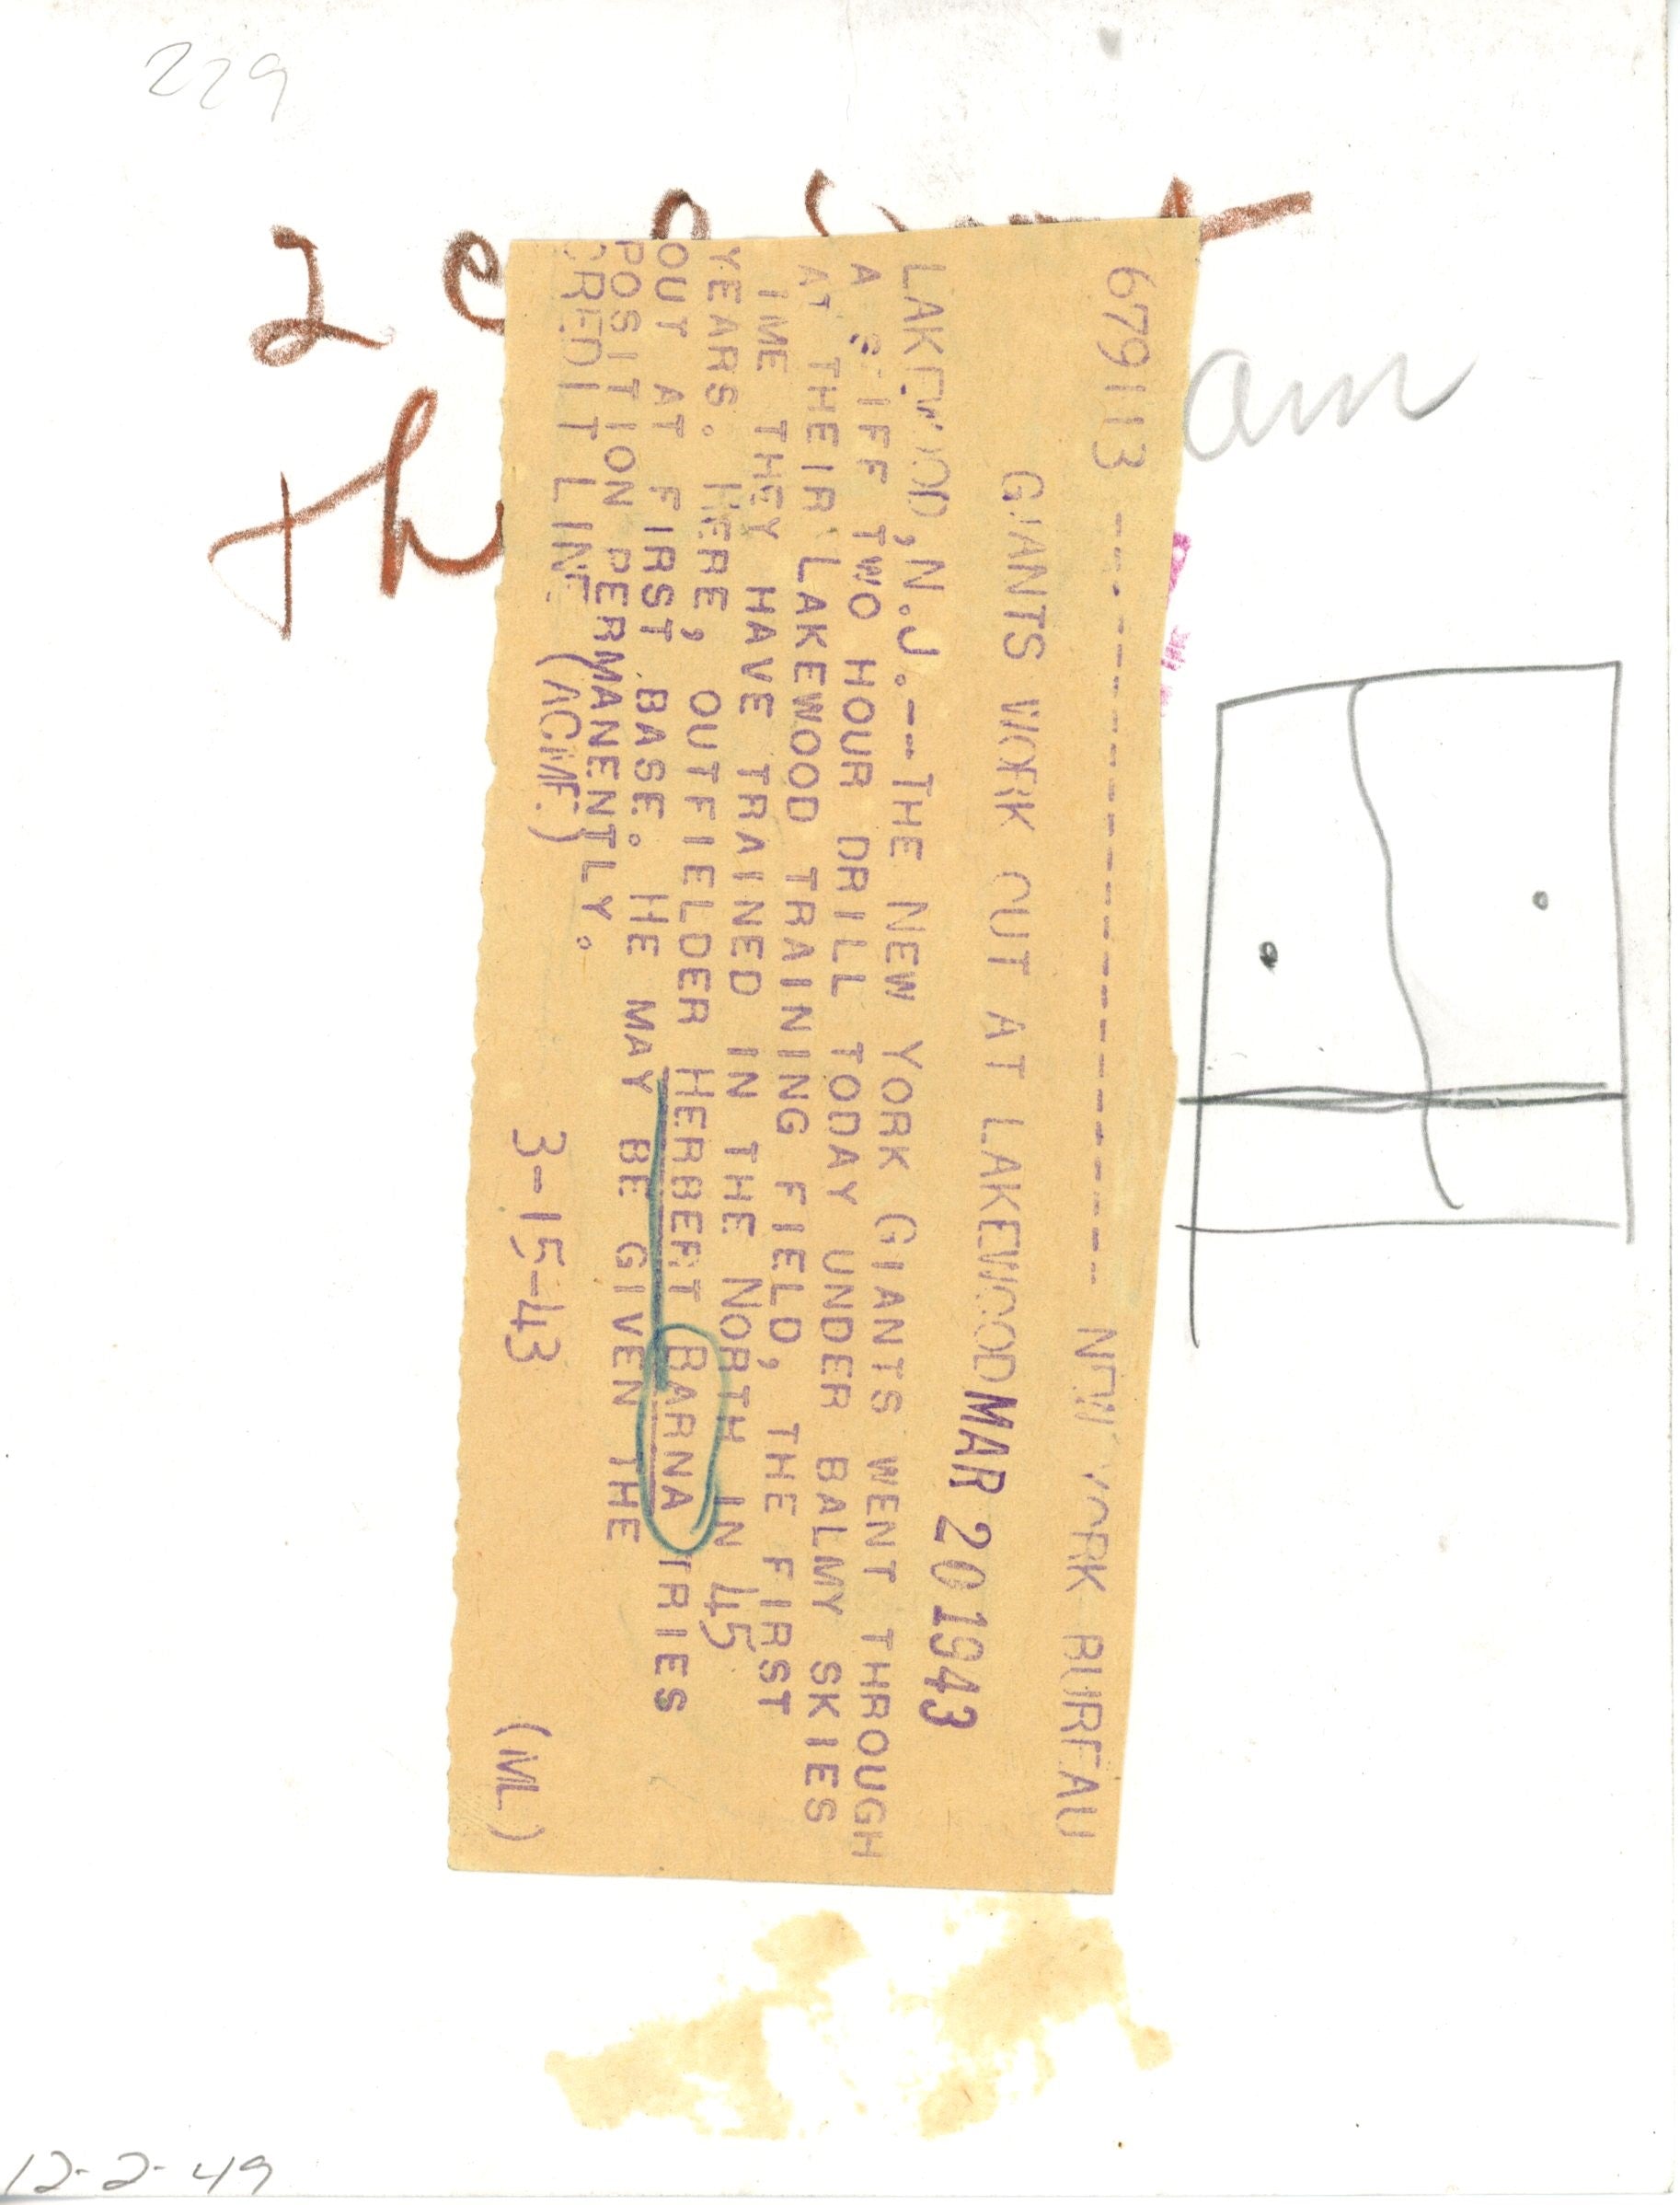 229
2 col
Th
am
679113 ---------------------- NEW YORK BUREAU
GIANTS WORK OUT AT LAKEWOOD
MAR 20 1943
LAKEWOOD, N.J.--THE NEW YORK GIANTS WENT THROUGH
A STIFF TWO HOUR DRILL TODAY UNDER BALMY SKIES
AT THEIR LAKEWOOD TRAINING FIELD, THE FIRST
TIME THEY HAVE TRAINED IN THE NORTH IN 45
YEARS. HERE, OUTFIELDER HERBERT BARNA TRIES
OUT AT FIRST BASE. HE MAY BE GIVEN THE
POSITION PERMANENTLY.
CREDIT LINE (ACME) 3-15-43 (ML)
12-2-49